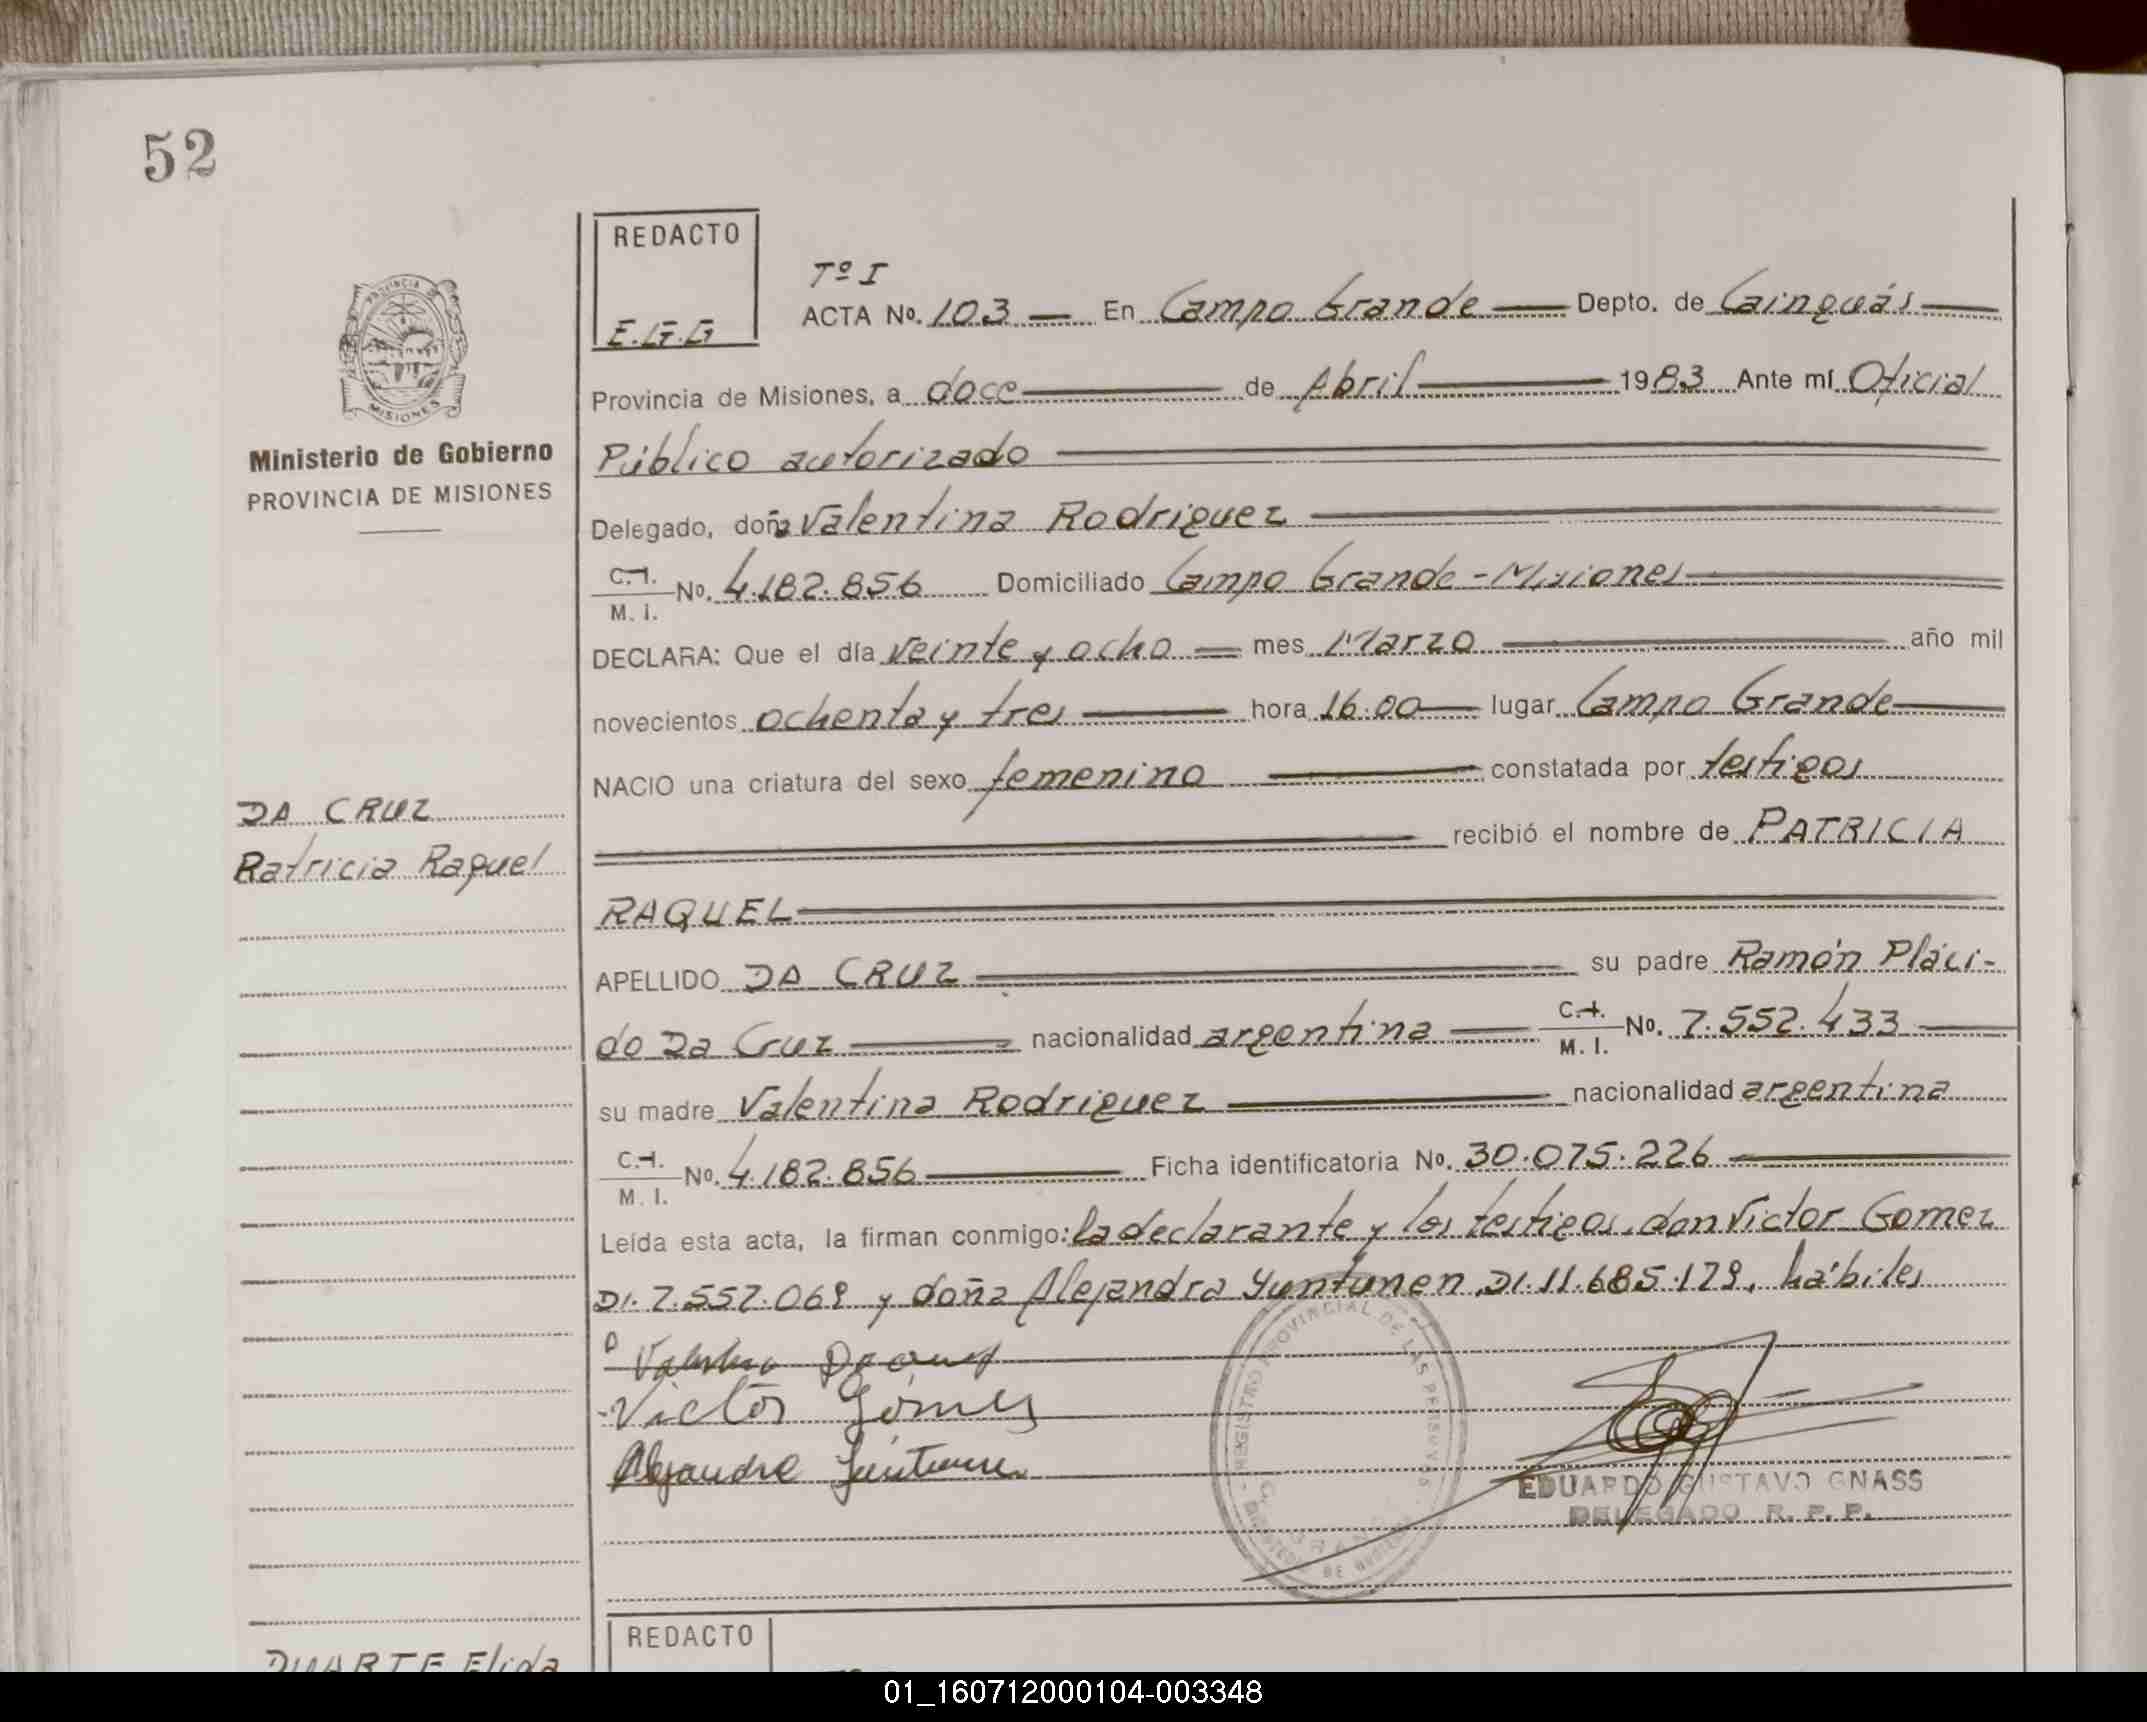 52
REDACTO
E.G.G
Tº I
ACTA Nº. 103 — En Campo Grande — Depto. de Cainguás
Provincia de Misiones, a doce de Abril 1983 Ante mí Oficial
Público autorizado
Delegado, doña Valentina Rodriguez
C.I. M. I. Nº. 4.182.856 Domiciliado Campo Grande - Misiones
DECLARA: Que el día veinte y ocho mes Marzo año mil
novecientos ochenta y tres hora 16.00 lugar Campo Grande
NACIO una criatura del sexo femenino constatada por testigos
recibió el nombre de PATRICIA
RAQUEL
APELLIDO DA CRUZ su padre Ramón Pláci-
do Da Cruz nacionalidad argentina C.I. M. I. Nº. 7.552.433
su madre Valentina Rodriguez nacionalidad argentina
C.I. M. I. Nº. 4.182.856 Ficha identificatoria Nº. 30.075.226
Leída esta acta, la firman conmigo: la declarante y los testigos, don Victor Gomez
DI. 7.557.069 y doña Alejandra Yuntunen DI. 11.685.179, hábiles
Victor Gómes
EDUARDO GUSTAVO GNASS
DELEGADO R. P. P.
REGISTRO PROVINCIAL DE LAS PERSONAS
PROVINCIA
MISIONES
Ministerio de Gobierno
PROVINCIA DE MISIONES
DA CRUZ
Patricia Raquel
DUARTE Elida
REDACTO
01_160712000104-003348